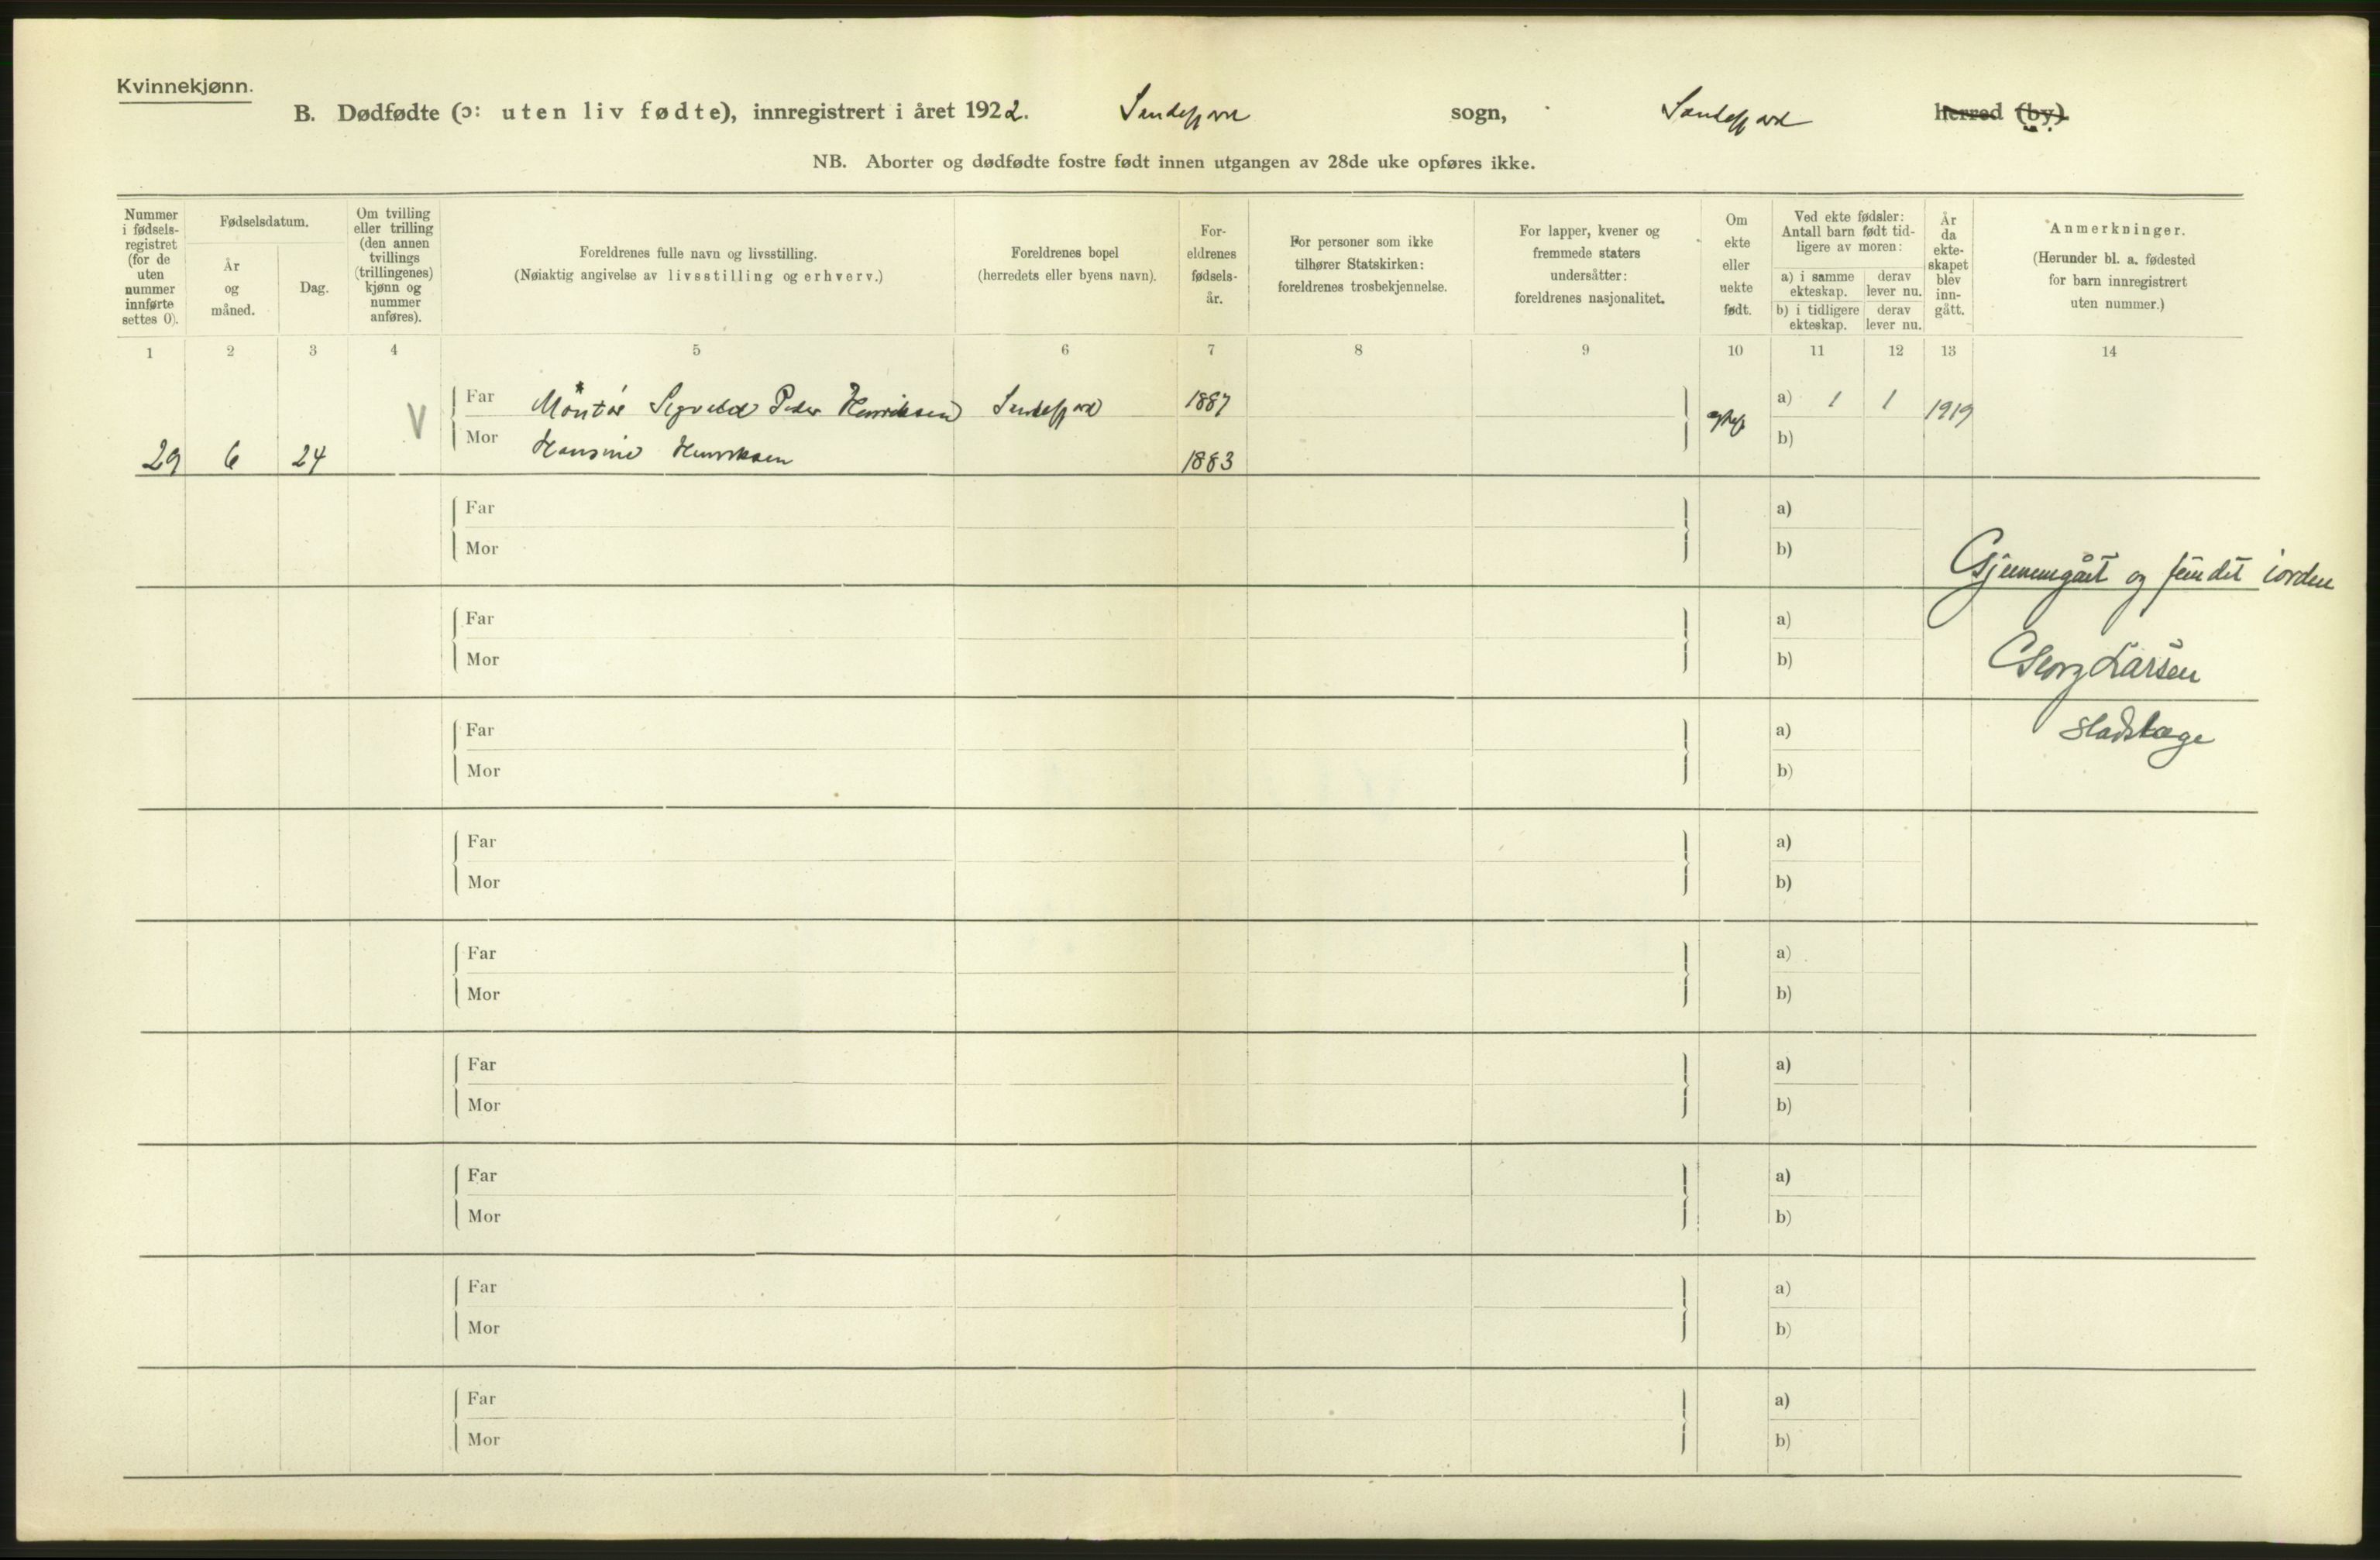 Kvinnekjønn.
B. Dødfødte (ɔ: uten liv fødte), innregistrert i året 1922. Sandefjord sogn, Sandefjord herred (by).
NB. Aborter og dødfødte fostre født innen utgangen av 28de uke opføres ikke.
Nummer i fødsels-registret (for de uten nummer innførte settes 0).
Fødselsdatum.
År og måned.
Dag.
Om tvilling eller trilling (den annen tvillings (trillingenes) kjønn og nummer anføres).
Foreldrenes fulle navn og livsstilling.
(Nøiaktig angivelse av livsstilling og erhverv.)
Foreldrenes bopel
(herredets eller byens navn).
For-eldrenes fødsels-år.
For personer som ikke tilhører Statskirken: foreldrenes trosbekjennelse.
For lapper, kvener og fremmede staters undersåtter: foreldrenes nasjonalitet.
Om ekte eller uekte født.
Ved ekte fødsler: Antall barn født tid-ligere av moren:
a) i samme ekteskap.
derav lever nu.
b) i tidligere ekteskap.
derav lever nu.
År da ekte-skapet blev inn-gått.
Anmerkninger.
(Herunder bl. a. fødested for barn innregistrert uten nummer.)
1 2 3 4 5 6 7 8 9 10 11 12 13 14
Far Montør Sigvald Peder Henriksen Sandefjord 1887 a) 1 1 1919
29 6 24 V Mor Hansine Henriksen 1883 b)
Far a)
Mor b)
Gjennemgått og fundet iorden
Far a)
Mor b)
Georg Larsen
Far a)
Stadslæge
Mor b)
Far a)
Mor b)
Far a)
Mor b)
Far a)
Mor b)
Far a)
Mor b)
Far a)
Mor b)
Far a)
Mor b)